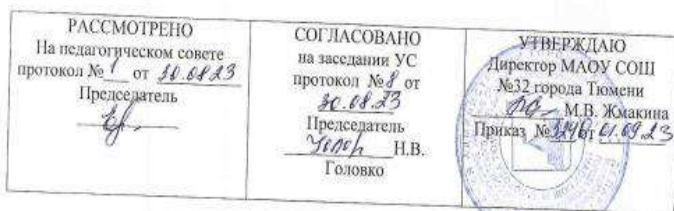 РАССМОТРЕНО
На педагогическом совете
протокол № 1 от 30.08.23
Председатель
СОГЛАСОВАНО
на заседании УС
протокол № 8 от
30.08.23
Председатель
Н.В.
Головко
УТВЕРЖДАЮ
Директор МАОУ СОШ
№32 города Тюмени
М.В. Жмакина
Приказ № от 01.09.23